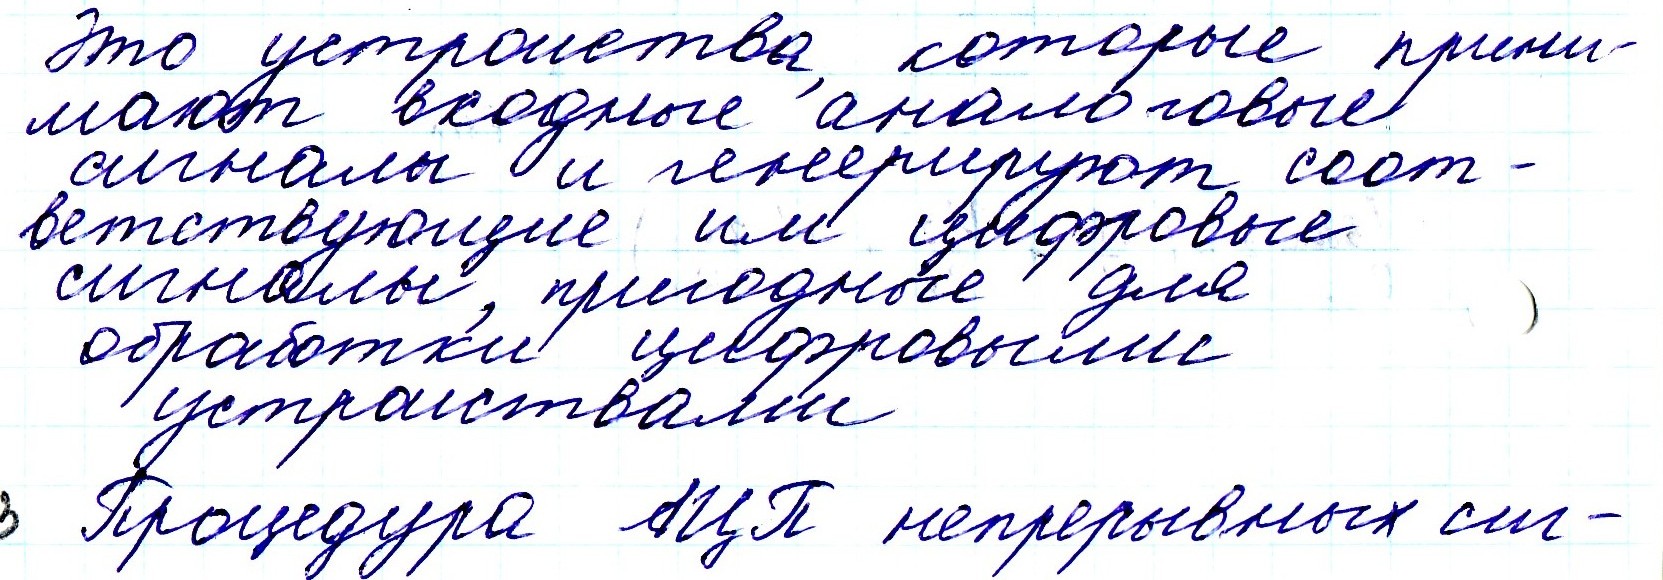 Это устроиства, которые прини-
мают входные аналоговые
сигналы и генерируют соот-
ветствующие им цифровые
сигналы, пригодные для
обработки цифровыми
устроиствами
Процедура АЦП непрерывных сиг-